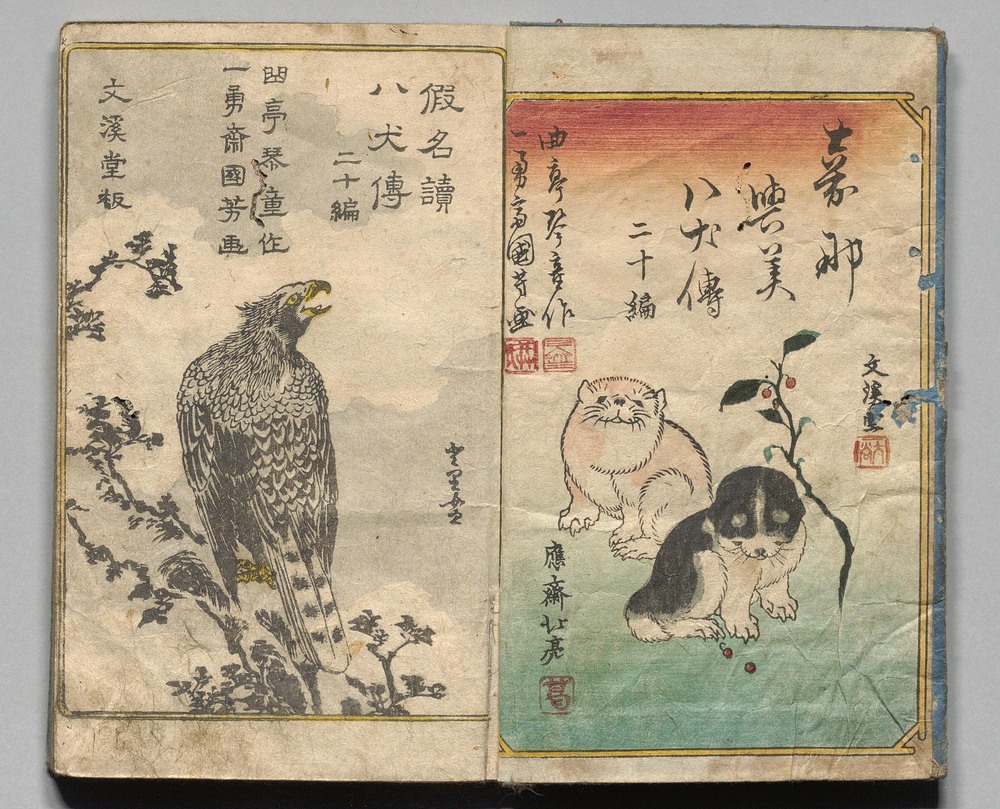 文溪堂
那
與美
八犬傳
二十編
曲亭琴童作
一勇齋國芳画
應齋北亮
假名讀
八犬傳
二十編
曲亭琴童作
一勇齋國芳画
文溪堂板